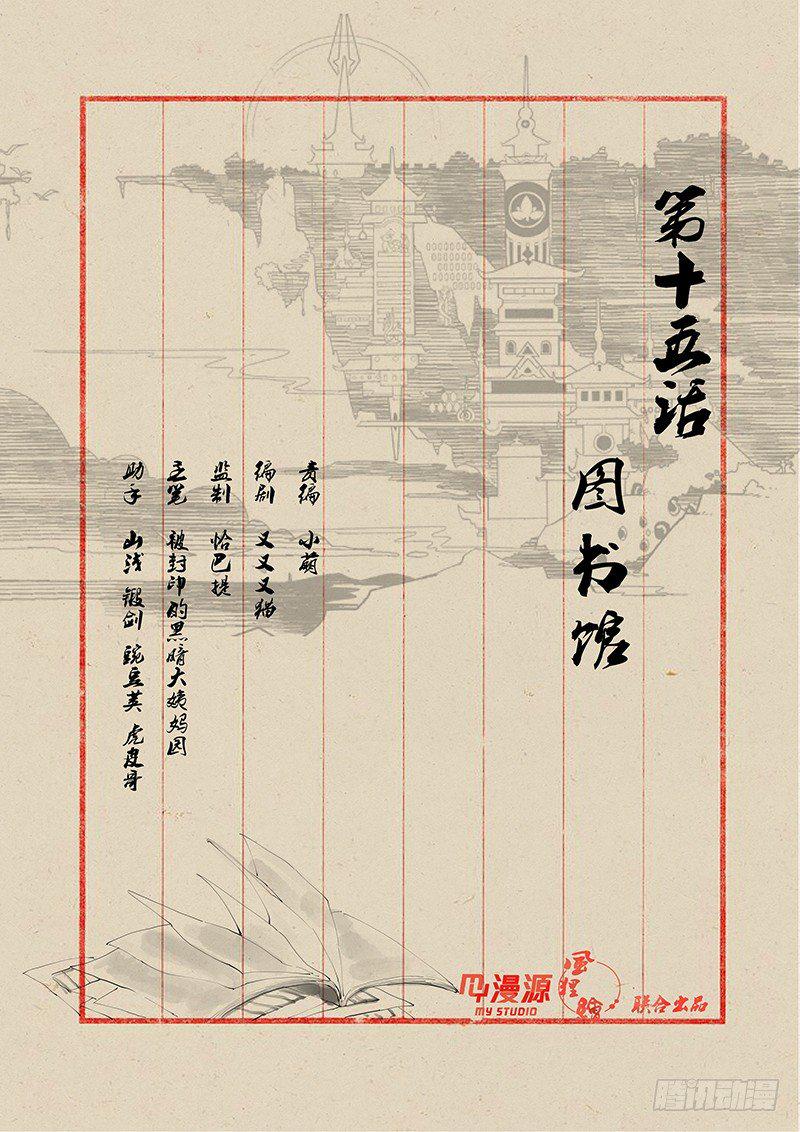 第十五话
图书馆
责编 小萌
编剧 又又又猫
监制 恰巴提
主笔 被封印的黑暗大姨妈因
助手 山浅 锻剑 豌豆荚 虎皮哥
漫源
MY STUDIO
联合出品
腾讯动漫